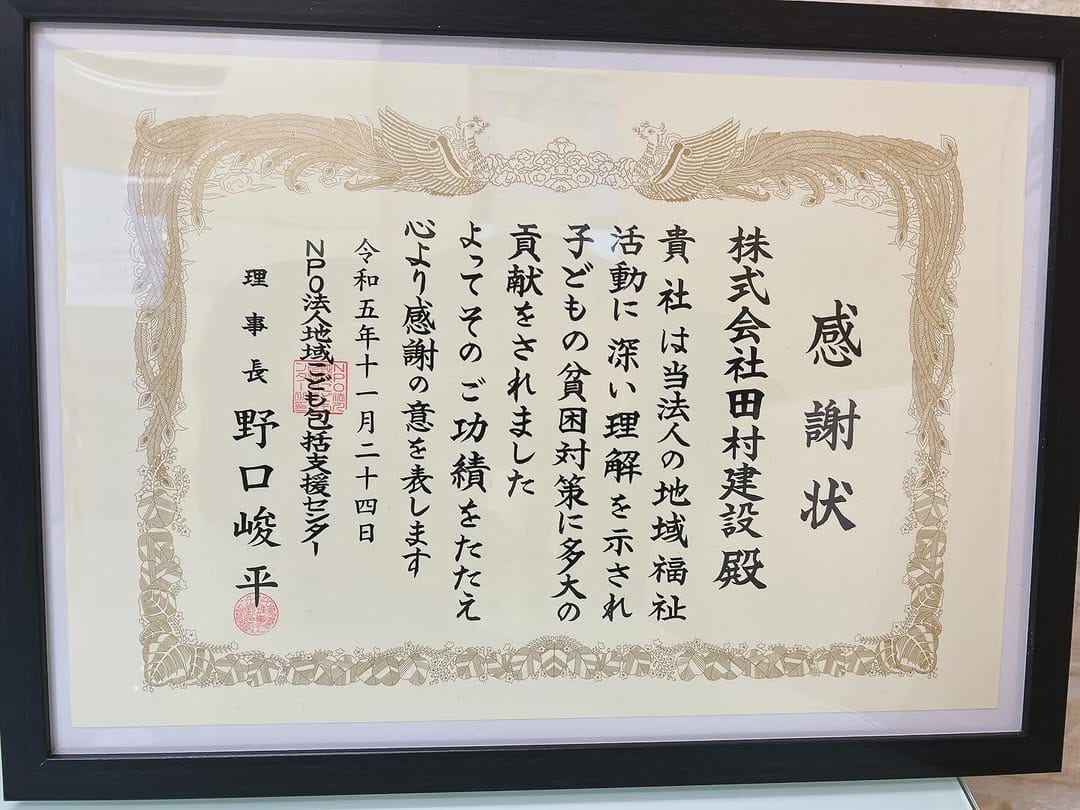 感謝状
株式会社田村建設殿
貴社は当法人の地域福祉
活動に深い理解を示され
子どもの貧困対策に多大の
貢献をされました
よってそのご功績をたたえ
心より感謝の意を表します
令和五年十一月二十四日
NPO法人地域こども包括支援センター
理事長 野口峻平